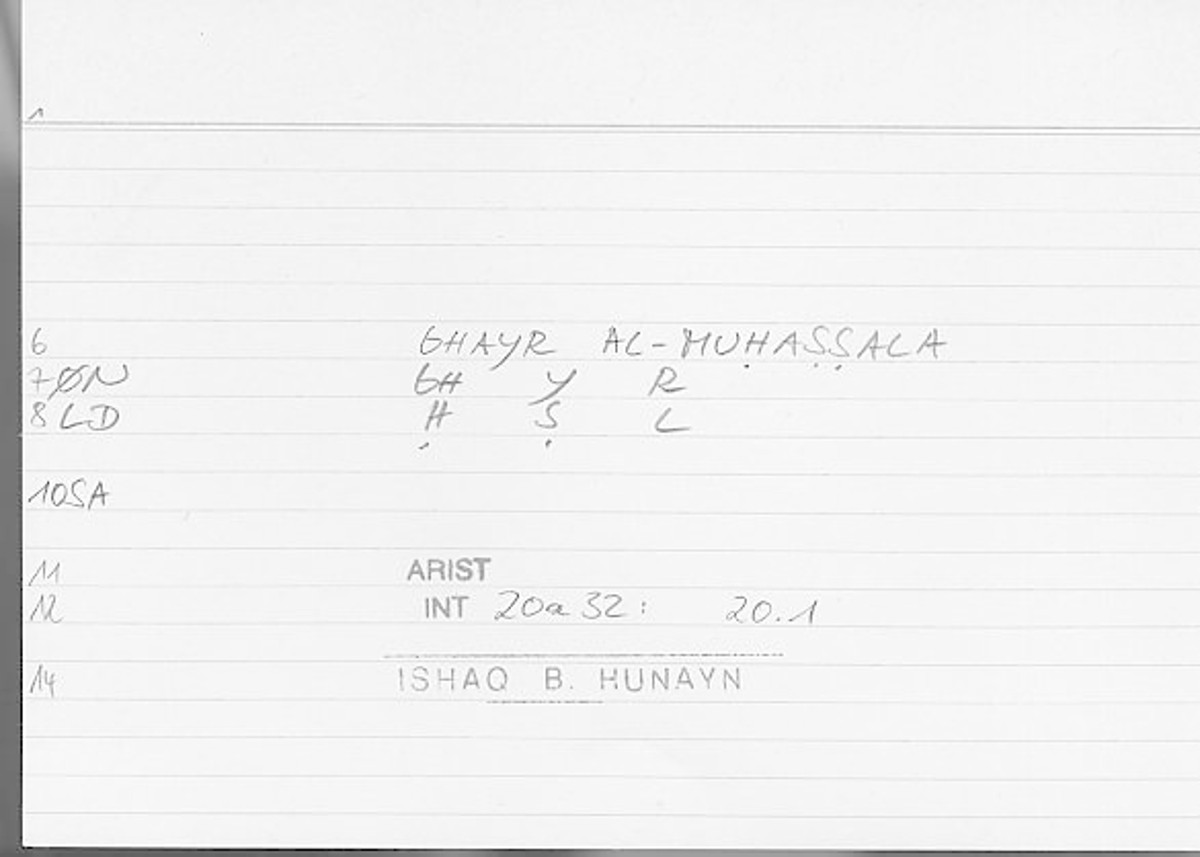 1
6 GHAYR AL-MUḤAṢṢALA
7 ØN GH Y R
8 LD Ḥ Ṣ L
10 SA
11 ARIST
12 INT 20a 32: 20.1
14 ISHAQ B. HUNAYN